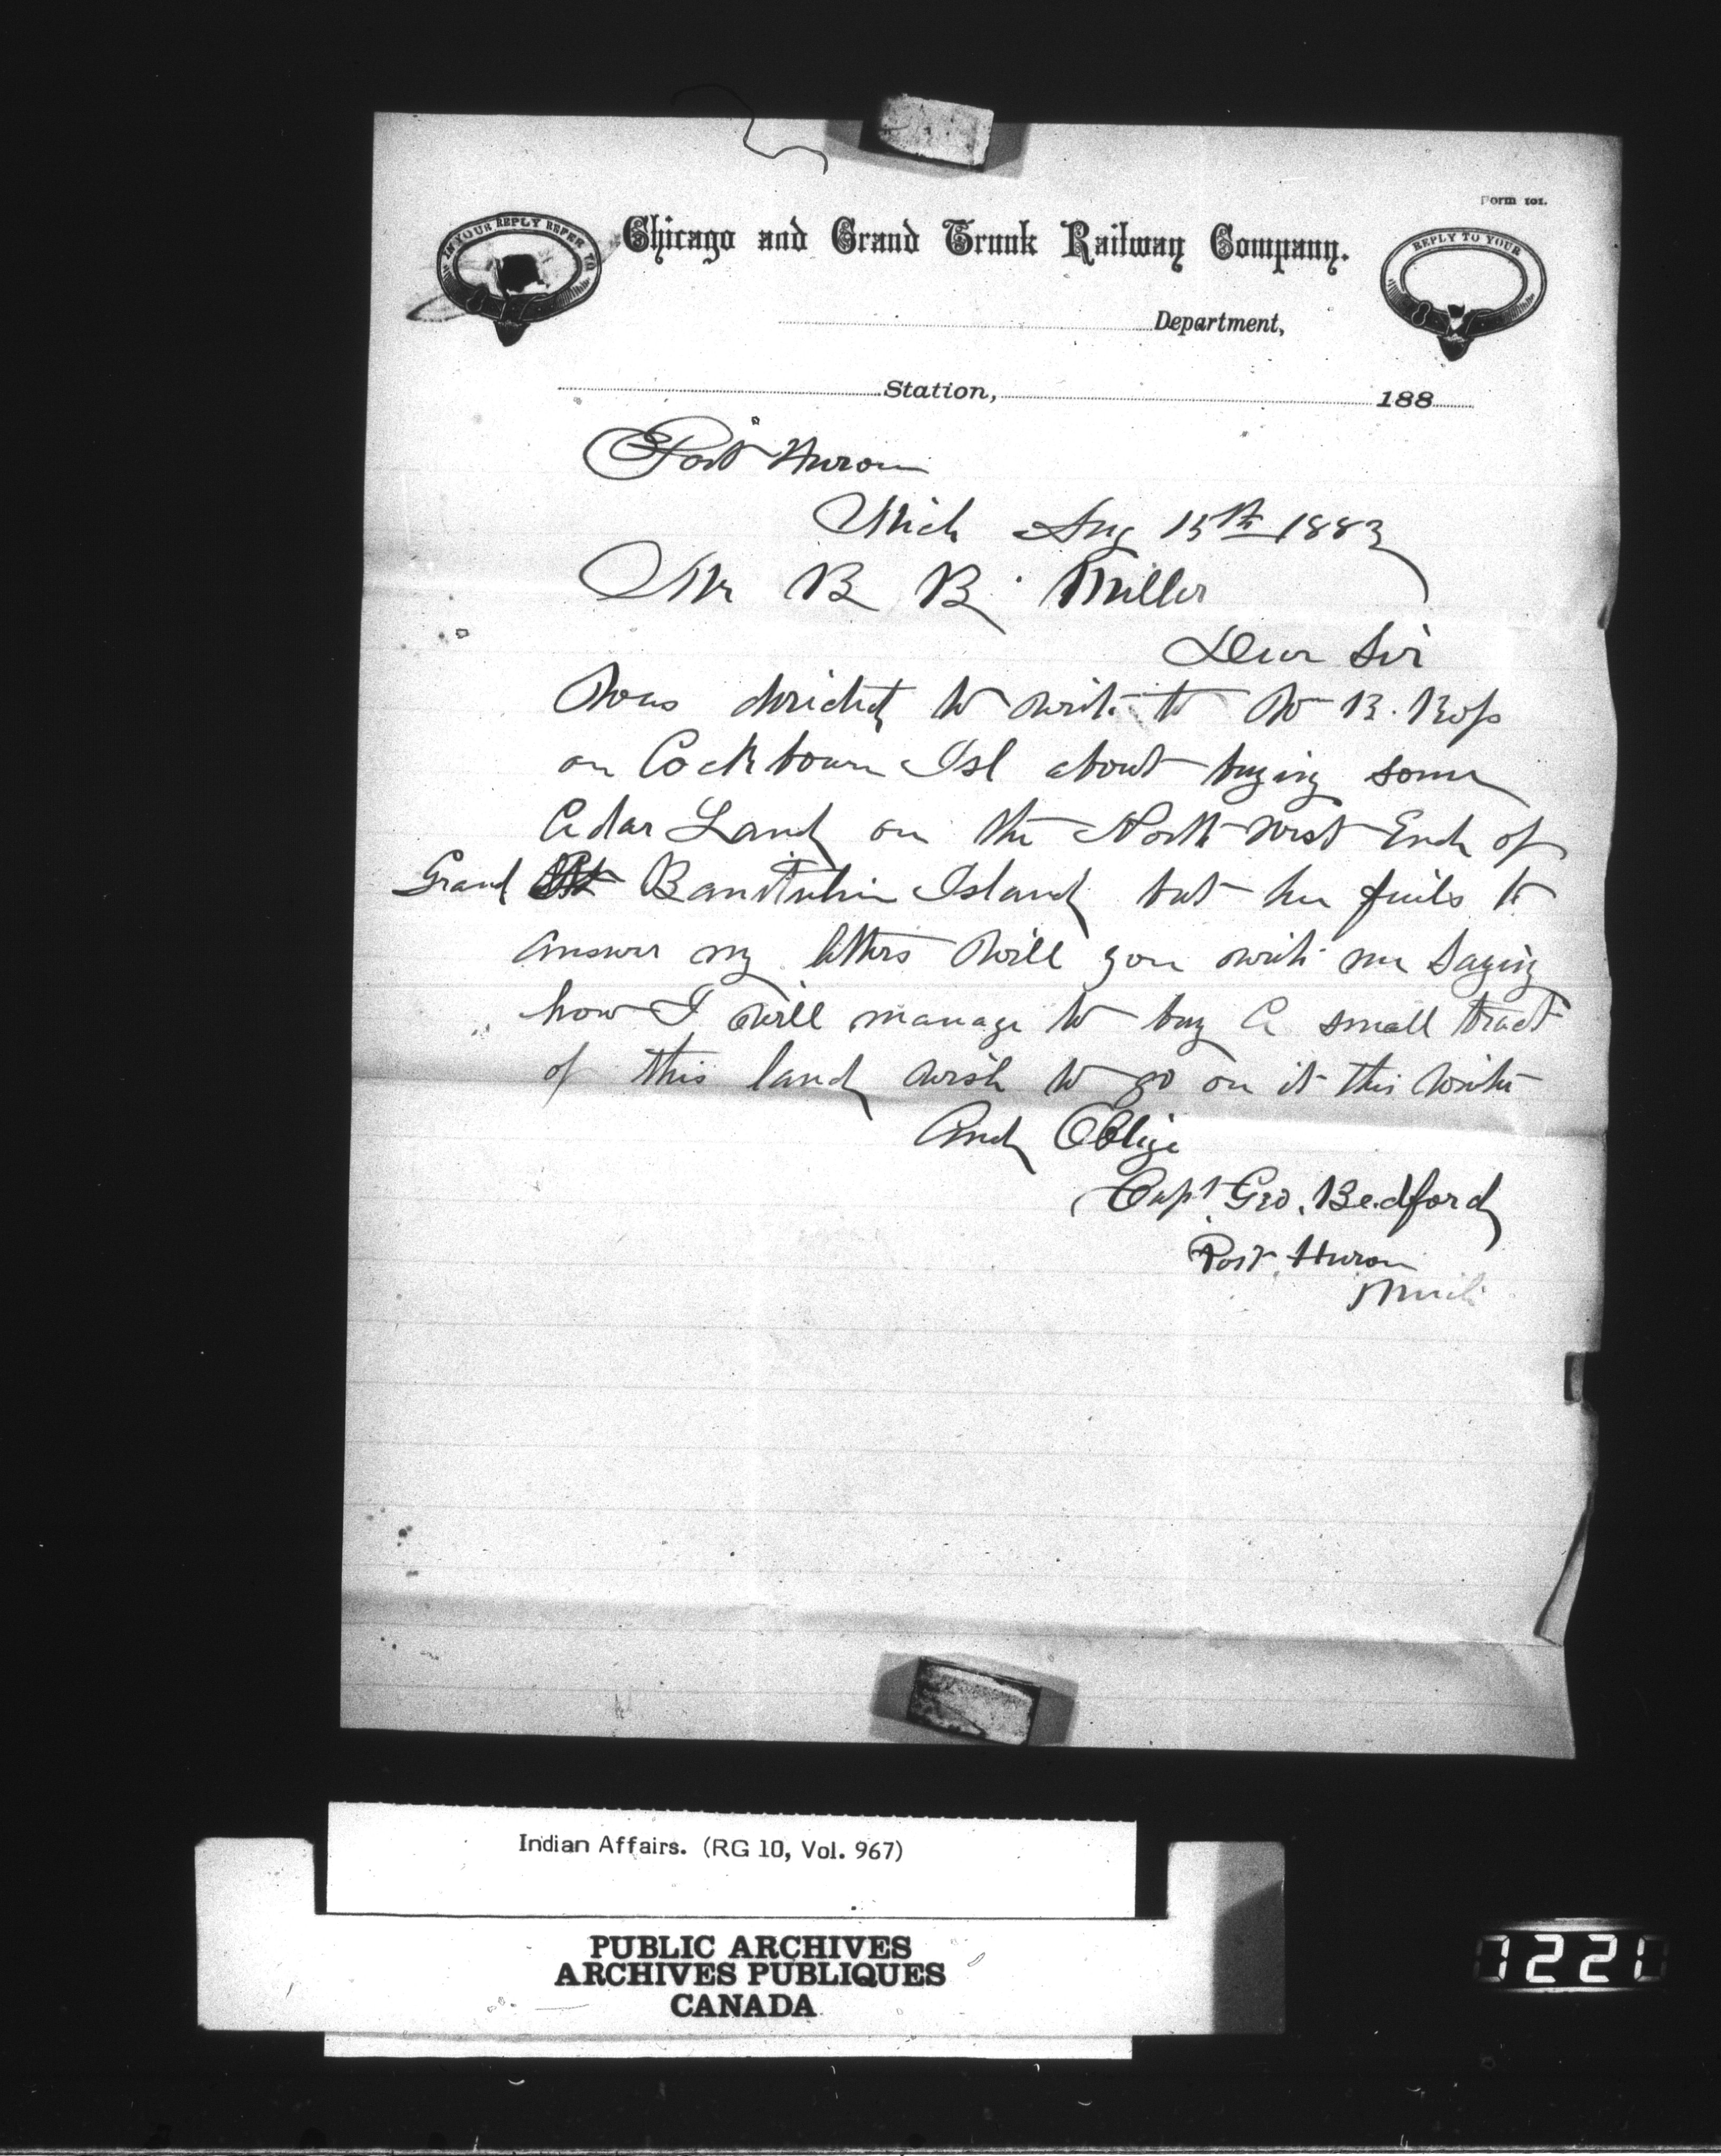 Form 101.
IN YOUR REPLY REFER TO
Chicago and Grand Trunk Railway Company.
REPLY TO YOUR
Department,
Station, 188
Port Huron
Mich Aug 15th 1883
Mr B B. Miller
Dear Sir
Was directed to write to W B.
on Cockbourn Isl about buying some
Cedar Land on the North West End of
Grand Island but he fails to
answer my letters Will you write me Saying
how I will manage to buy a small tract
of this land wish to go on it this winter
And Oblige
Capt Geo. Bedford
Port Huron
Mich
Indian Affairs. (RG 10, Vol. 967)
PUBLIC ARCHIVES
ARCHIVES PUBLIQUES
CANADA
1221